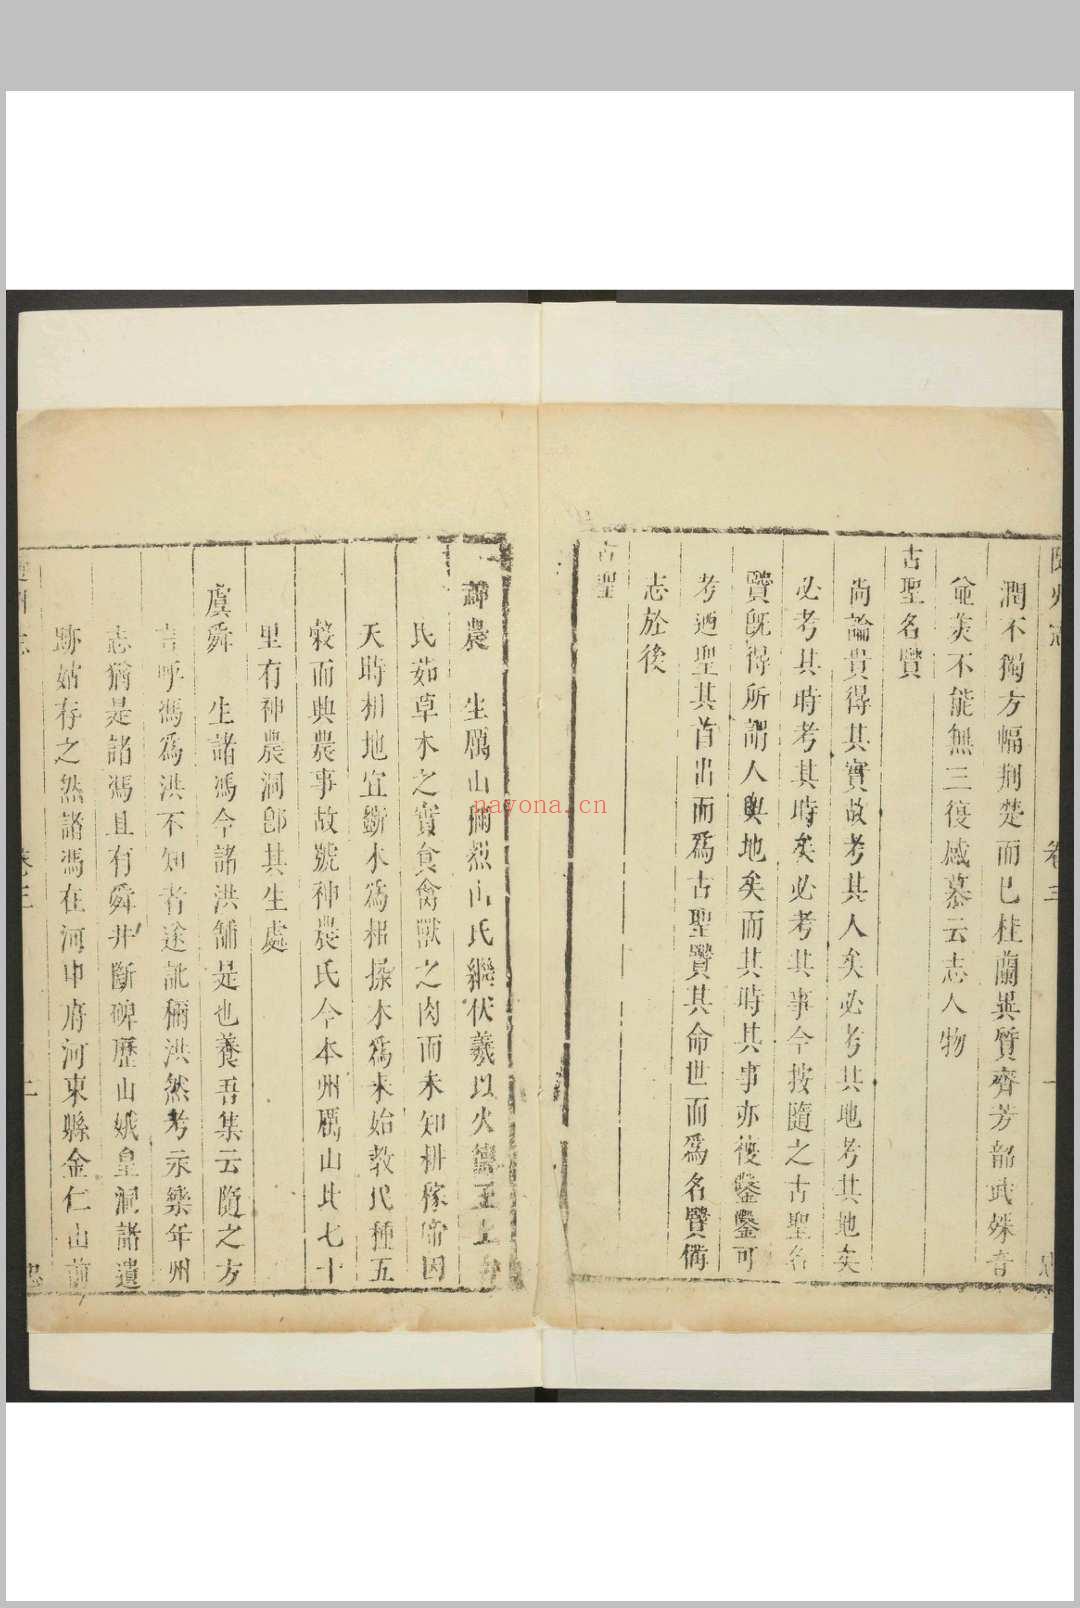 隨州志
卷三
潤不獨方幅荆楚而已桂蘭異質齊芳韶武殊音
兼美不能無三復感慕云志人物
古聖名賢
尚論貴得其實故考其人矣必考其地考其地矣
必考其時考其時矣必考其事今按隨之古聖名
賢旣得所謂人與地矣而其時其事亦復鑿鑿可
考迺聖其首出而爲古聖賢其命世而爲名賢備
志於後
古聖
神農 生厲山爾烈山氏繼伏羲以火德王上古
氏茹草木之實食禽獸之肉而未知耕稼帝因
天時相地宜斵木爲耜揉木爲耒始教民種五
榖而興農事故號神農氏今本州厲山北七十
里有神農洞卽其生處
虞舜 生諸馮今諸洪舖是也養吾集云隨之方
言呼馮爲洪不知者途訛稱洪然考永樂年州
志猶是諸馮且有舜井斷碑歷山娥皇洞諸遺
跡姑存之然諸馮在河中府河東縣金仁山前
隨州志
卷三
二
nayona.cn